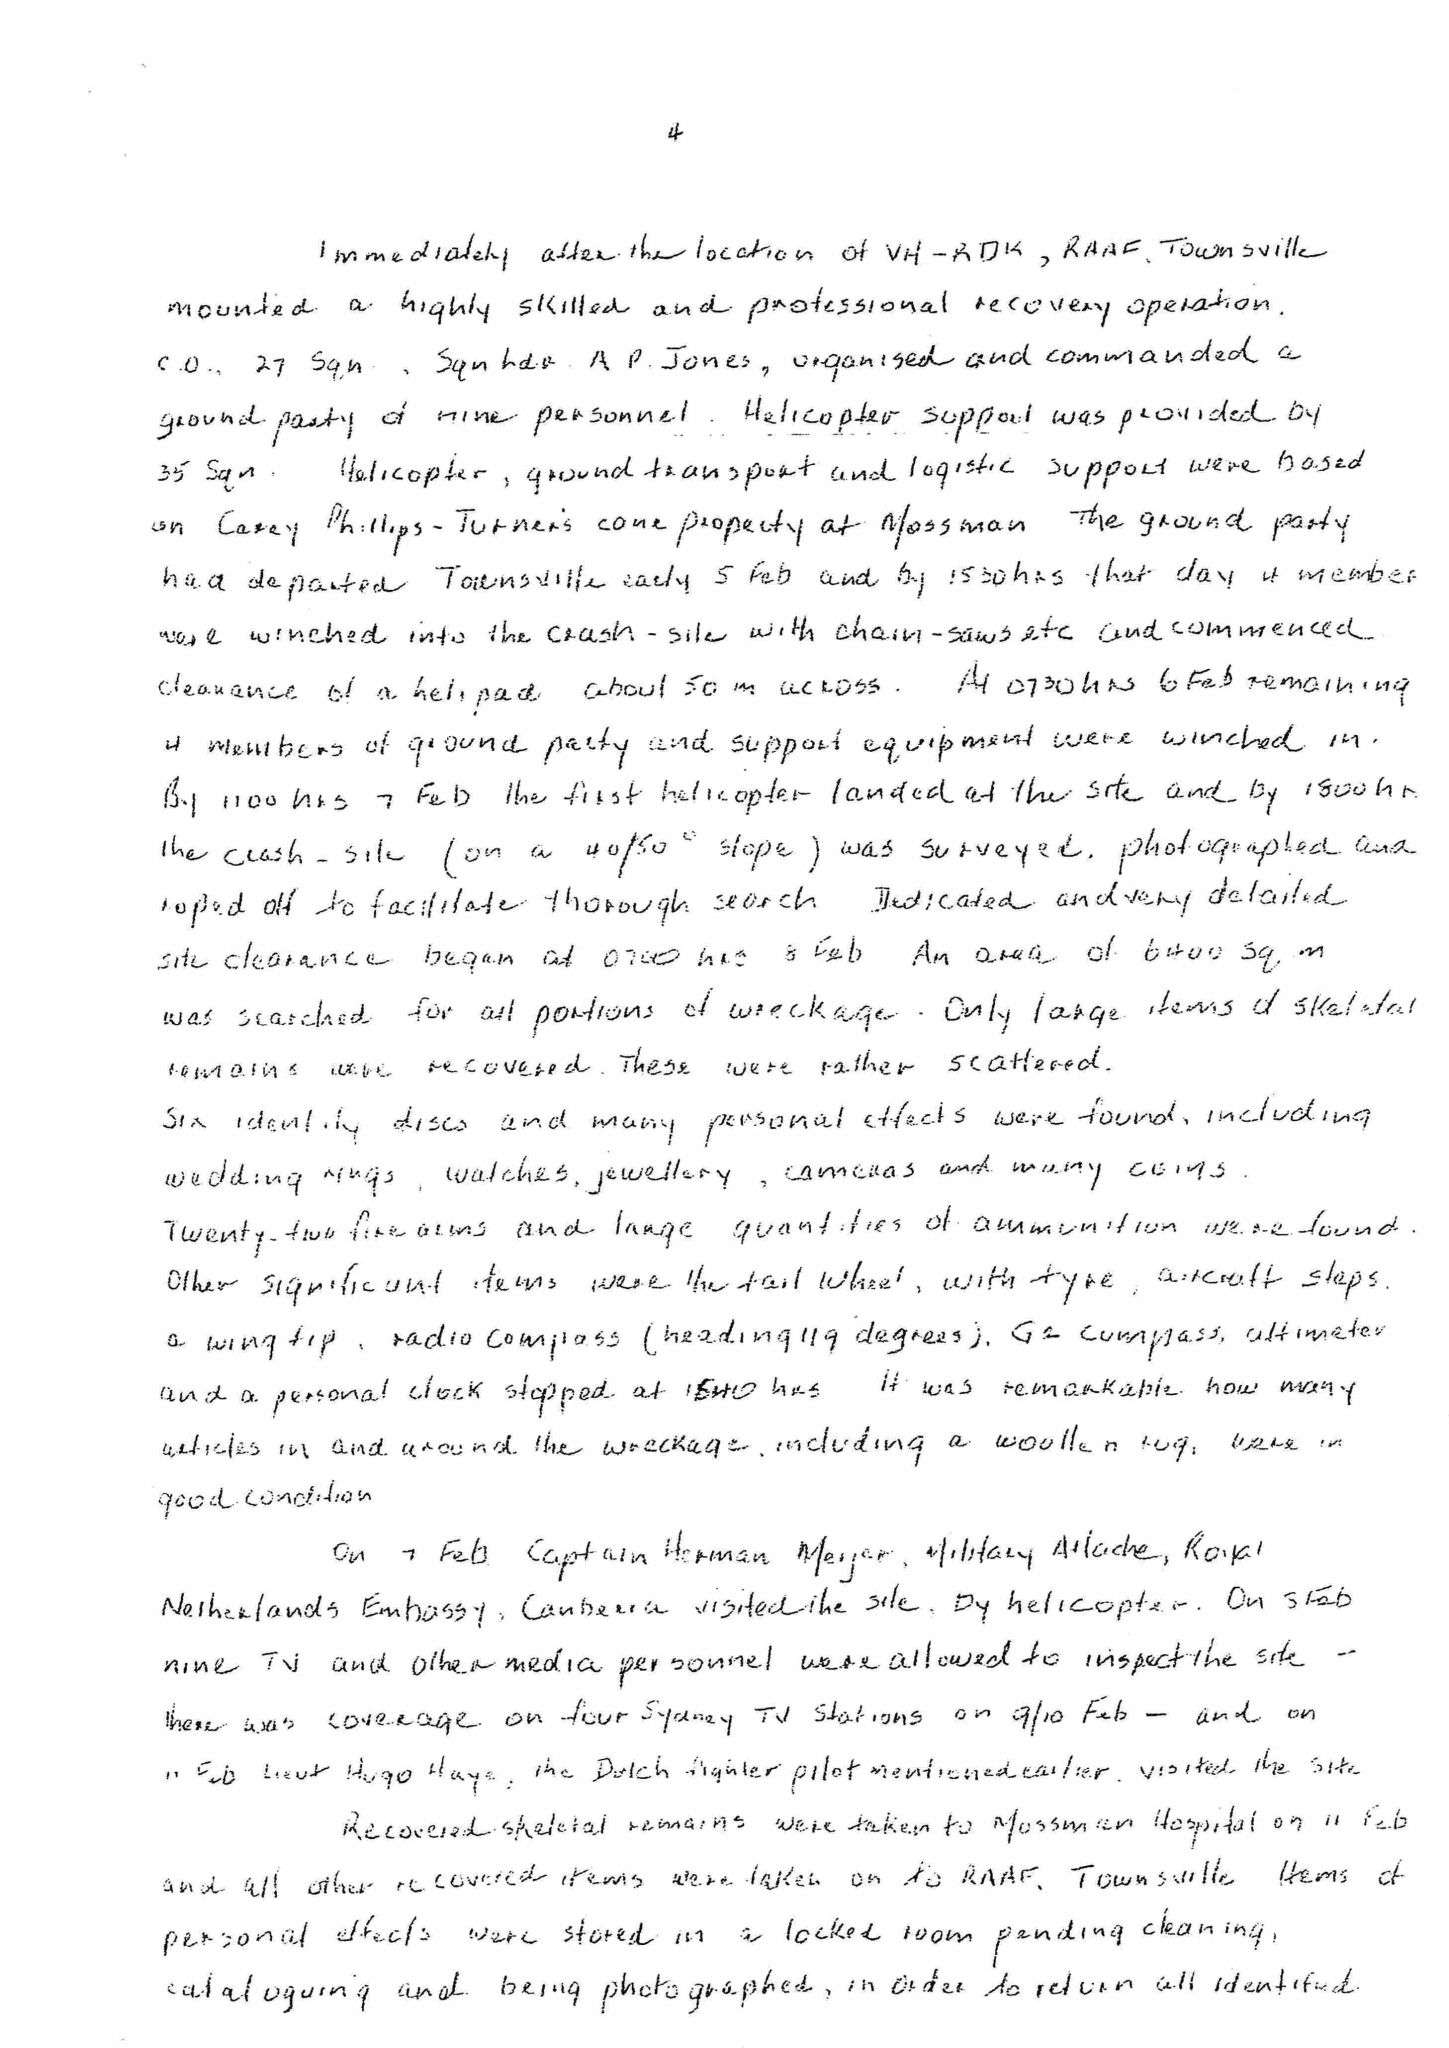 4
Immediately after the location of VH-RDK, RAAF, Townsville
mounted a highly skilled and professional recovery operation.
C.O., 27 Sqn, Sqn Ldr A P. Jones, organised and commanded a
ground party of nine personnel. Helicopter support was provided by
35 Sqn. Helicopter, ground transport and logistic support were based
on Carey Phillips-Turner's cane property at Mossman The ground party
had departed Townsville early 5 Feb and by 1530hrs that day 4 member
were winched into the crash-site with chain-saws etc and commenced
clearance of a helipad about 50 m across. At 0730hrs 6 Feb remaining
4 members of ground party and support equipment were winched in.
By 1100 hrs 7 Feb the first helicopter landed at the site and by 1800hr
the crash-site (on a 40/50° slope) was surveyed, photographed and
roped off to facilitate thorough search Dedicated and very detailed
site clearance began at 0700 hrs 8 Feb An area of 6400 sq, m
was searched for all portions of wreckage. Only large items of skeletal
remains were recovered. These were rather scattered.
Six identity discs and many personal effects were found, including
wedding rings, watches, jewellery, cameras and many coins.
Twenty-two fire arms and large quantities of ammunition were found.
Other significant items were the tail wheel, with tyre, aircraft steps,
a wing tip, radio compass (heading 119 degrees), G2 compass, altimeter
and a personal clock stopped at hrs It was remarkable how many
articles in and around the wreckage, including a woollen rug, were in
good condition
On 7 Feb Captain Herman Meijer, Military Attache, Royal
Netherlands Embassy, Canberra visited the site, by helicopter. On 8 Feb
nine TV and other media personnel were allowed to inspect the site -
there was coverage on four Sydney TV Stations on 9/10 Feb - and on
11 Feb Lieut Hugo Haye, the Dutch fighter pilot mentioned earlier, visited the site
Recovered skeletal remains were taken to Mossman Hospital on 11 Feb
and all other recovered items were taken on to RAAF, Townsville Items of
personal effects were stored in a locked room pending cleaning,
cataloguing and being photographed, in order to return all identified